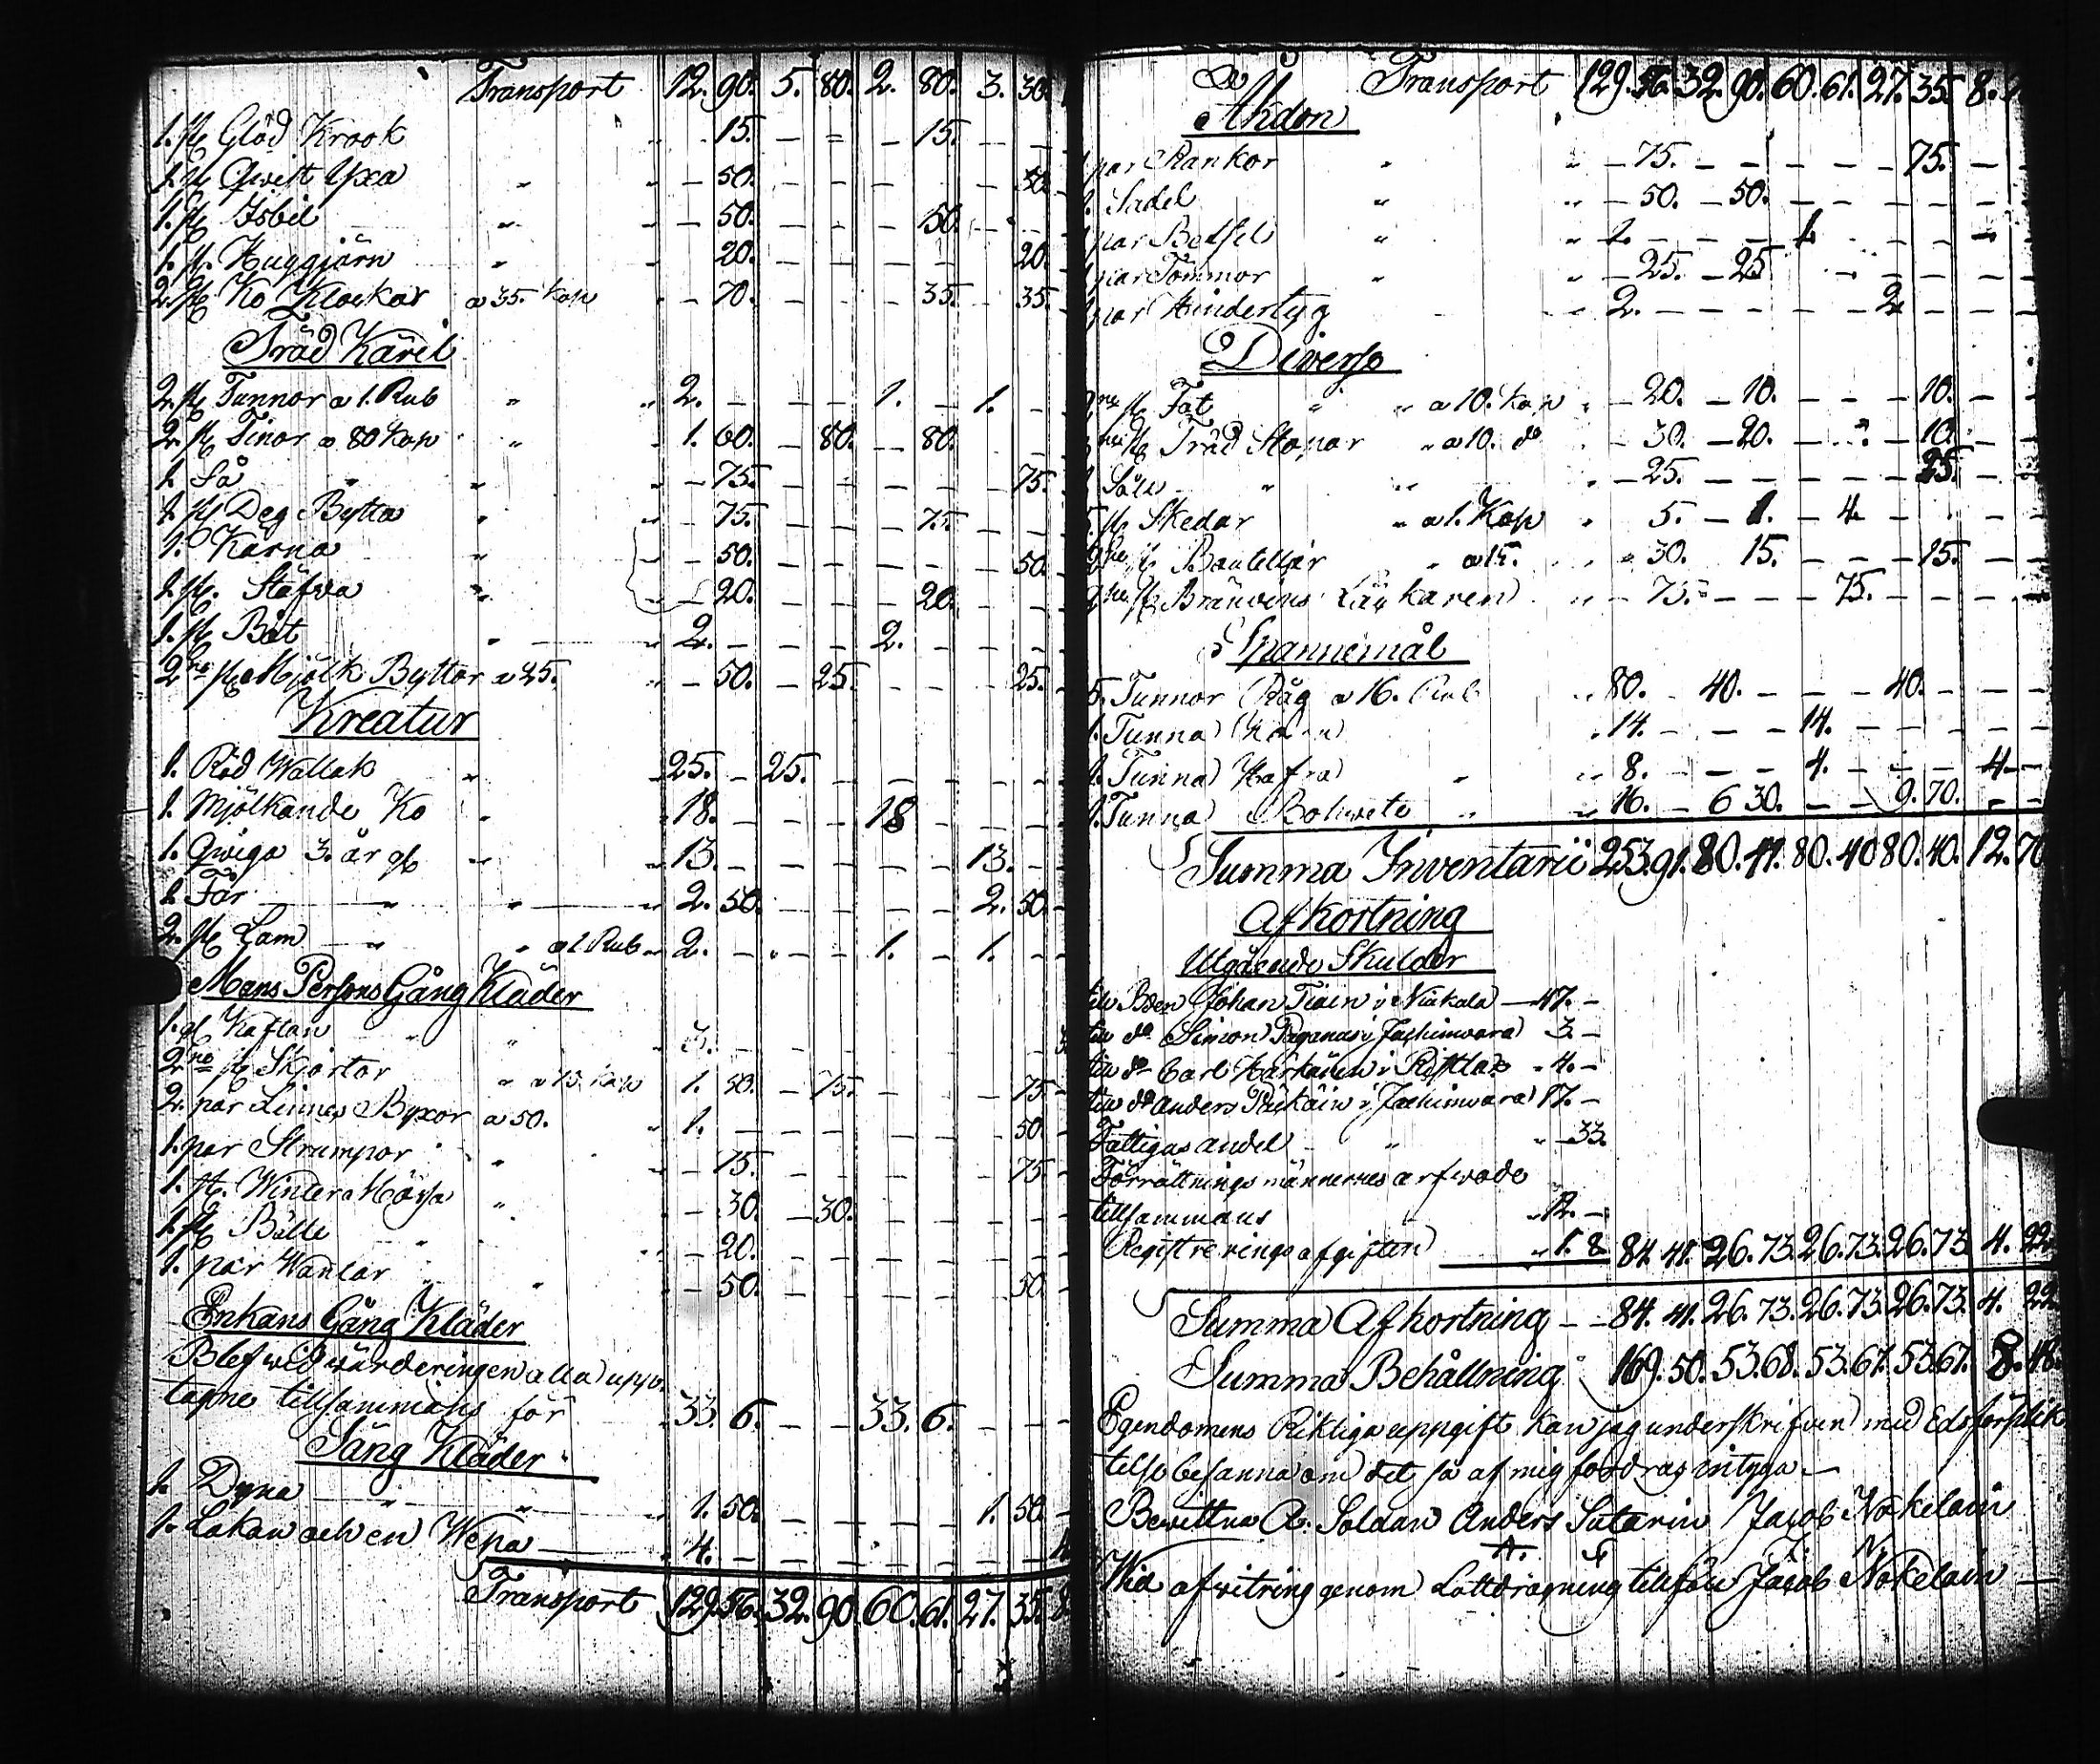 Transport 12. 90. 5. 80. 2. 80. 3. 30.
1. st Glöd Krook 15. 15.
1. st Qwist Yxa 50. 50.
1. st Isbil 50. 50.
1. st Huggjärn 20. 20.
2. st Ko Klockor a 35. Kop 70. 35. 35.
Träd Käril
2. st Tunnor a 1. Rub 2. 1. 1.
2. st Tinor a 80 Kop 1. 60. 80. 80.
1 Så 75. 75.
1. st Deg Bytta 75. 75.
1. Kärna 50. 50.
1. st Stäfva 20. 20.
1. st Båt 2. 2.
2ne st Mjölk Byttor a 25. 50. 25. 25.
Kreatur
1. Röd Wallak 25. 25.
1. Mjölkande Ko 18. 18
1. Qwiga 3. år gl 13. 13.
1 Får 2. 50. 2. 50.
2. st Lam a 1 Rub 2. 1. 1.
Mans Persons Gång Kläder
1. gl Kaftan 3.
2ne st Skjortor a 75. Kop 1. 50. 75. 75
2. par Linnes Byxor a 50. 1. 50
1. par Strumpor 15. 75
1. st. Winter Mössa 30. 30.
1. st Bälte 20.
1. par Wantar 50. 50.
Enkans Gång Kläder
Blef wid wärderingen alla upp
tagne tillsammans för 33. 6. 33. 6.
Säng Kläder
1. Dyna 1. 50. 1. 50.
1. Lakan och en Wepa 4.
Transport 129. 56. 32. 90. 60. 61. 27. 35. 8
Transport 129. 56. 32. 90. 60. 61. 27. 35. 8.
Åkdon
par Rankor 75. 75.
1. Sadel 50. 50.
par Betsel 1. 1.
par Tömmor 25. 25
par Hindertyg 2. 2
Diverse
2ne st Fat a 10. Kop 20. 10. 10.
3ne st Träd Stopar a 10. do 30. 20. 10.
1 Såll 25. 25.
5. st Skedar a 1. Kop 5. 1. 4.
2ne st Bouteller a 15. 30. 15. 15.
2ne st Bränvins Läg karen 75. 75.
Spannemål
5. Tunnor Råg a 16. Rub 80. 40. 40.
1. Tunna Korn 14. 14.
1. Tunna Hafra 8. 4. 4.
1. Tunna Bohwete 16. 6 30. 9. 70.
Summa Inventarii 253. 91. 80. 41. 80. 40 80. 40. 12. 70
Afkortning
Utgående Skulder
till Bden Johan Tiain i 47.
till do Simon Paganus i Jachimvara 3.
till do Carl Kärkäinen i 4.
till do Anders i Jachimvara 17.
Fattigas andel 33.
Förrättningsmännernes arfwode
tillsammans 12.
Registreringsafgiften 1. 8 84. 41. 26. 73. 26. 73. 26. 73. 4. 22
Summa Afkortning 84. 41. 26. 73. 26. 73. 26. 73. 4. 22
Summa Behållning 169. 50. 53. 68. 53. 67. 53. 67. 8. 48.
Egendomens Riktiga uppgift kan jag underskrifven med Eds förplik
telse besanna om det så af mig fordras intyga
Bewittna A. Soldan Anders Sutarin Jacob Nokelain
Wid afvitring genom Lottdragning tillföll Jacob Nokelain